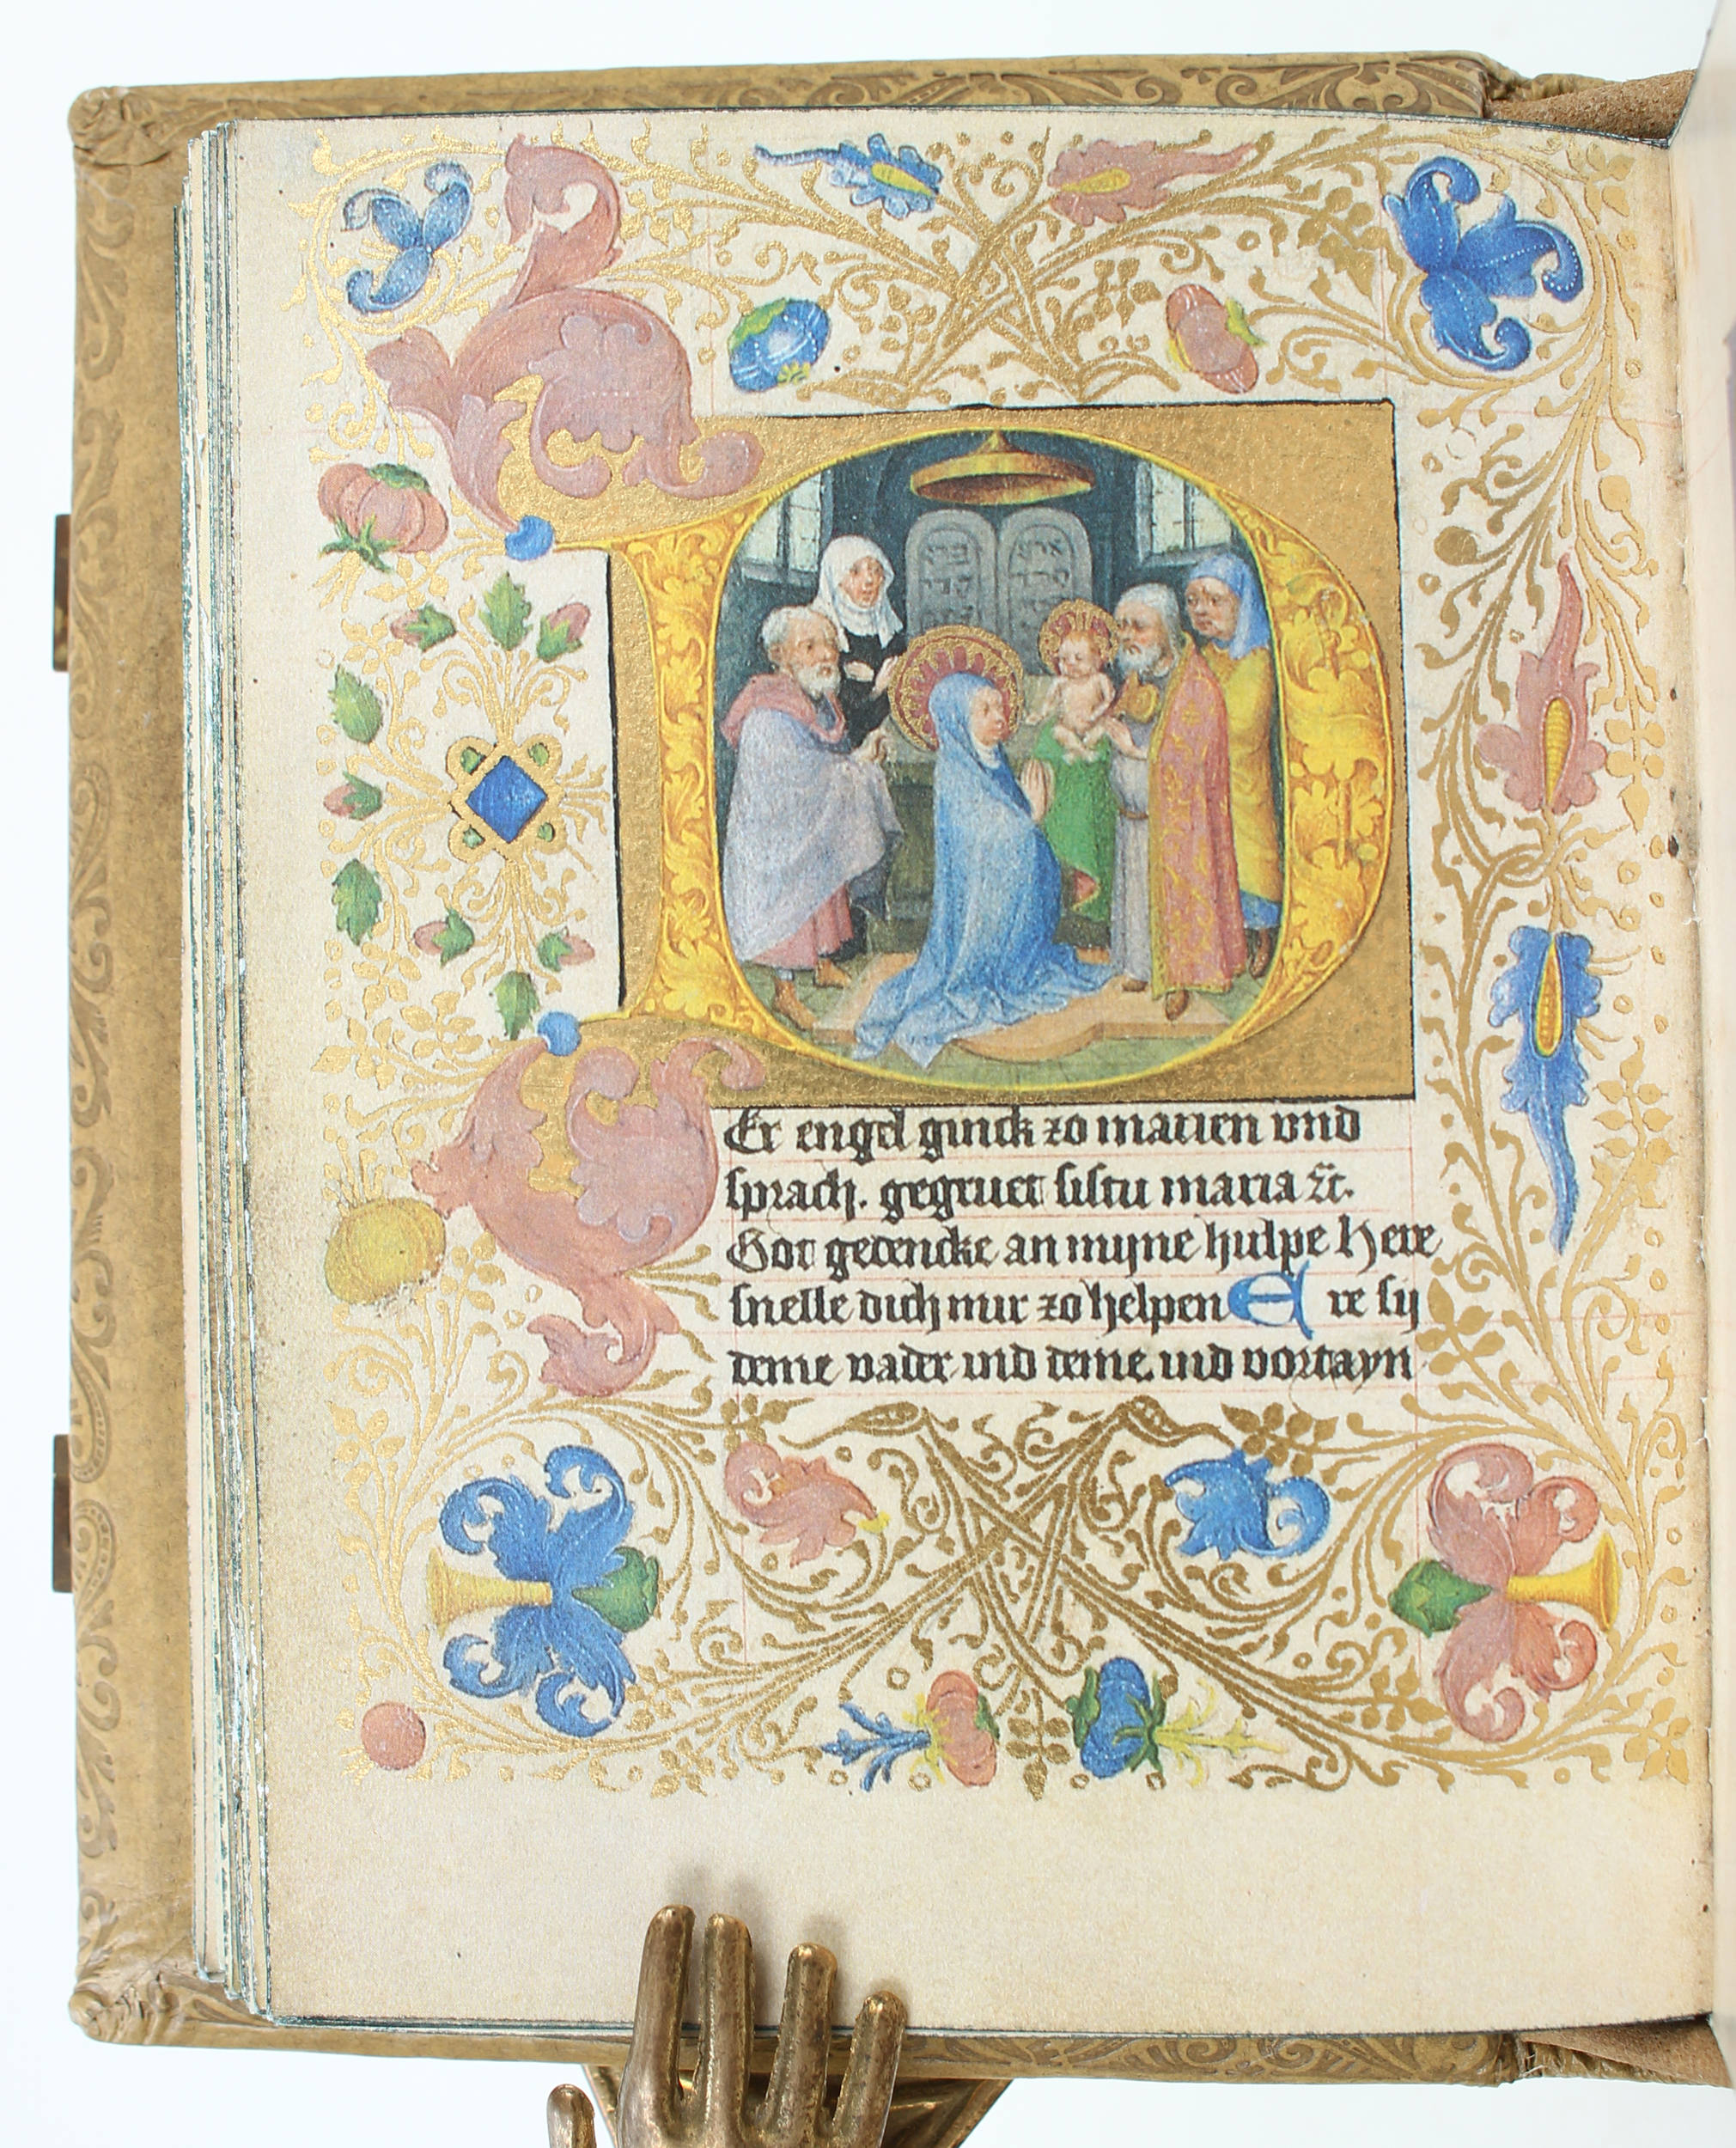 D
Er engel ginck zo marien vnd
sprach. gegruet sistu maria ⁊c̄.
Got gedencke an mijne hulpe Here
snelle dich mir zo helpen E re sij
deme vader vnd deme. vnd vortayn